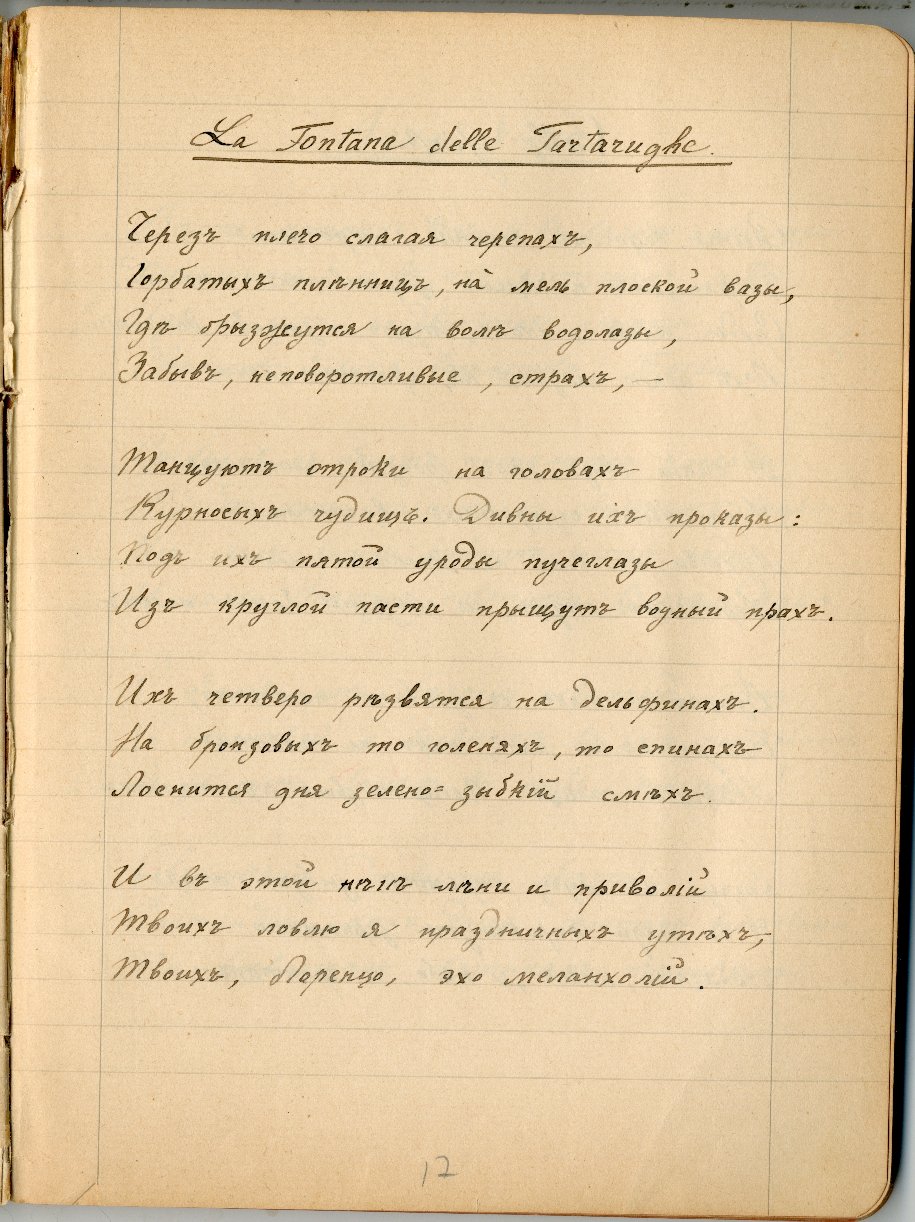 La Fontana delle Tartarughe.
Черезъ плечо слагая черепахъ,
Горбатыхъ плѣнницъ, на́ мель плоской вазы,
Гдѣ брызжутся на волѣ водолазы,
Забывъ, неповоротливые, страхъ, —
Танцуютъ отроки на головахъ
Курносыхъ чудищъ. Дивны ихъ проказы:
Подъ ихъ пятой уроды пучеглазы
Изъ круглой пасти прыщутъ водный прахъ.
Ихъ четверо рѣзвятся на дельфинахъ.
На бронзовыхъ то голеняхъ, то спинахъ
Лоснится дня зелено-зыбкій смѣхъ.
И въ этой нѣгѣ лѣни и приволій
Твоихъ ловлю я праздничныхъ утѣхъ,
Твоихъ, Лоренцо, эхо меланхолій.
17